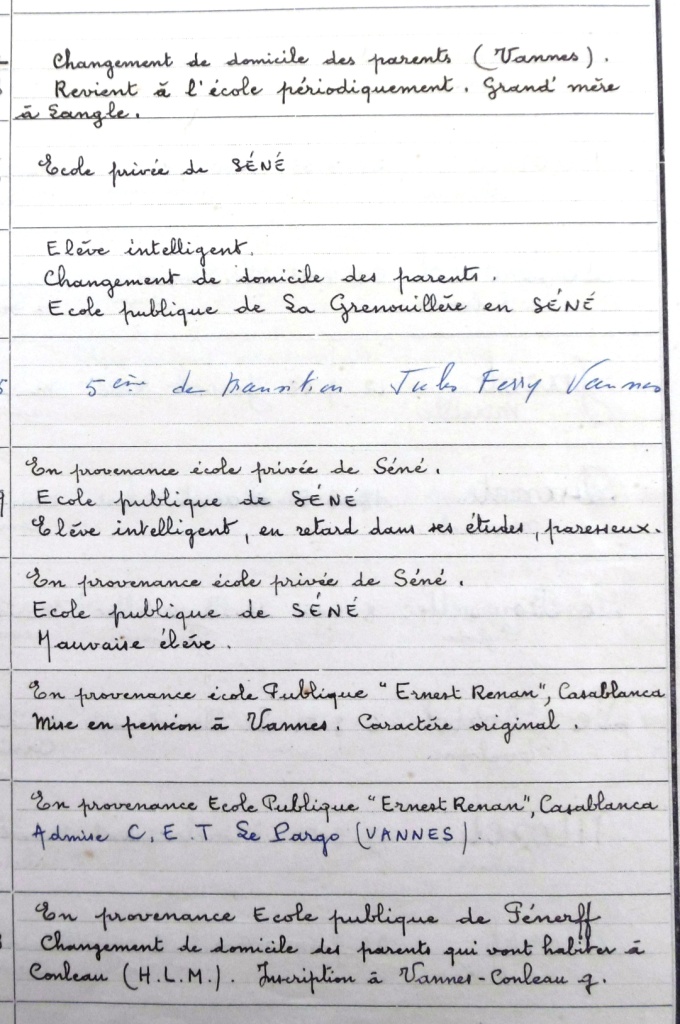 Changement de domicile des parents (Vannes).
Revient à l'école périodiquement. Grand' mère
à Langle.
Ecole privée de SÉNÉ
Elève intelligent.
Changement de domicile des parents.
Ecole publique de La Grenouillère en SÉNÉ
5ème de transition Jules Ferry Vannes
En provenance école privée de Séné.
Ecole publique de SÉNÉ
Elève intelligent, en retard dans ses études, paresseux.
En provenance école privée de Séné.
Ecole publique de SÉNÉ
Mauvaise élève.
En provenance école Publique "Ernest Renan", Casablanca
Mise en pension à Vannes. Caractère original.
En provenance Ecole Publique "Ernest Renan", Casablanca
Admise C.E.T Le Pargo (VANNES)
En provenance Ecole publique de Pénerff
Changement de domicile des parents qui vont habiter à
Conleau (H.L.M.). Inscription à Vannes-Conleau g.